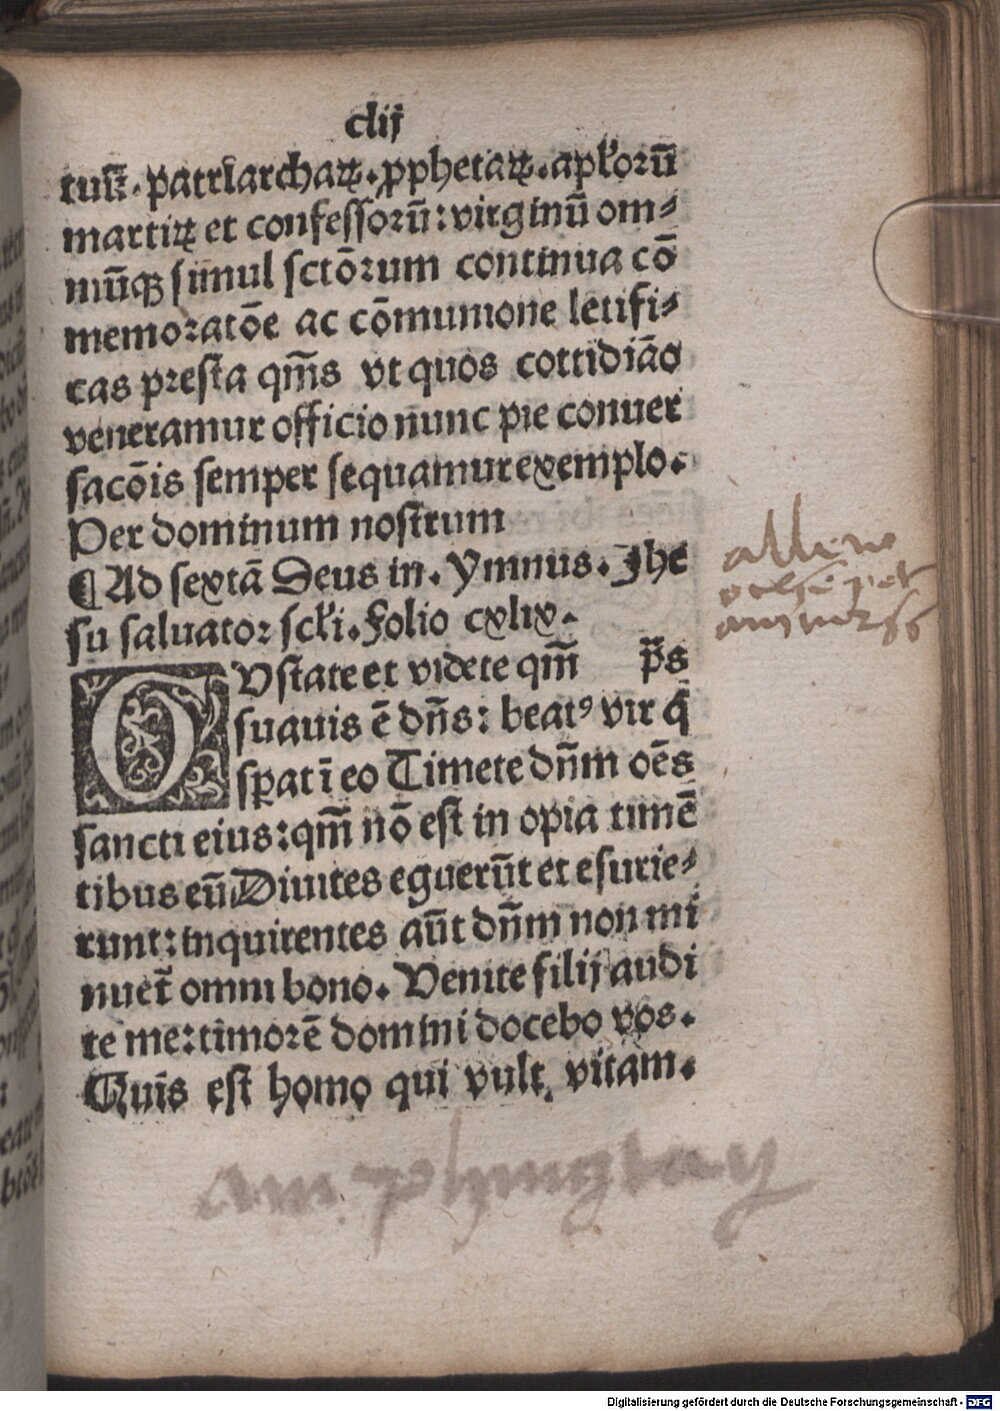 clij
tuũ. patriarchaꝝ. ꝓphetaꝝ. apl'orũ
martiꝝ et confessorũ: virginũ om⸗
niũqꝫ simul sctõrum continua cõ
memoratõe ac cõmunione letifi⸗
cas presta qm̃s vt quos cottidião
veneramur officio nunc pie conuer
sacõis semper sequamur exemplo.
Per dominum nostrum
¶ Ad sextã Deus in. Ymnus. Jhe
su saluator scl'i. Folio cxlix.
GVstate et videte qm̃ p̃s
suauis ẽ dñs: beatꝰ vir q̃
sꝑat ĩ eo Timete dñm oẽs
sancti eius: qm̃ nõ est in opia timẽ
tibus eũ Diuites eguerũt et esurie⸗
runt: inquirentes aũt dñm non mi
nuet̃ omni bono. Venite filij audi
te me: timorẽ domini docebo vos.
Quis est homo qui vult vitam.
am phingtay